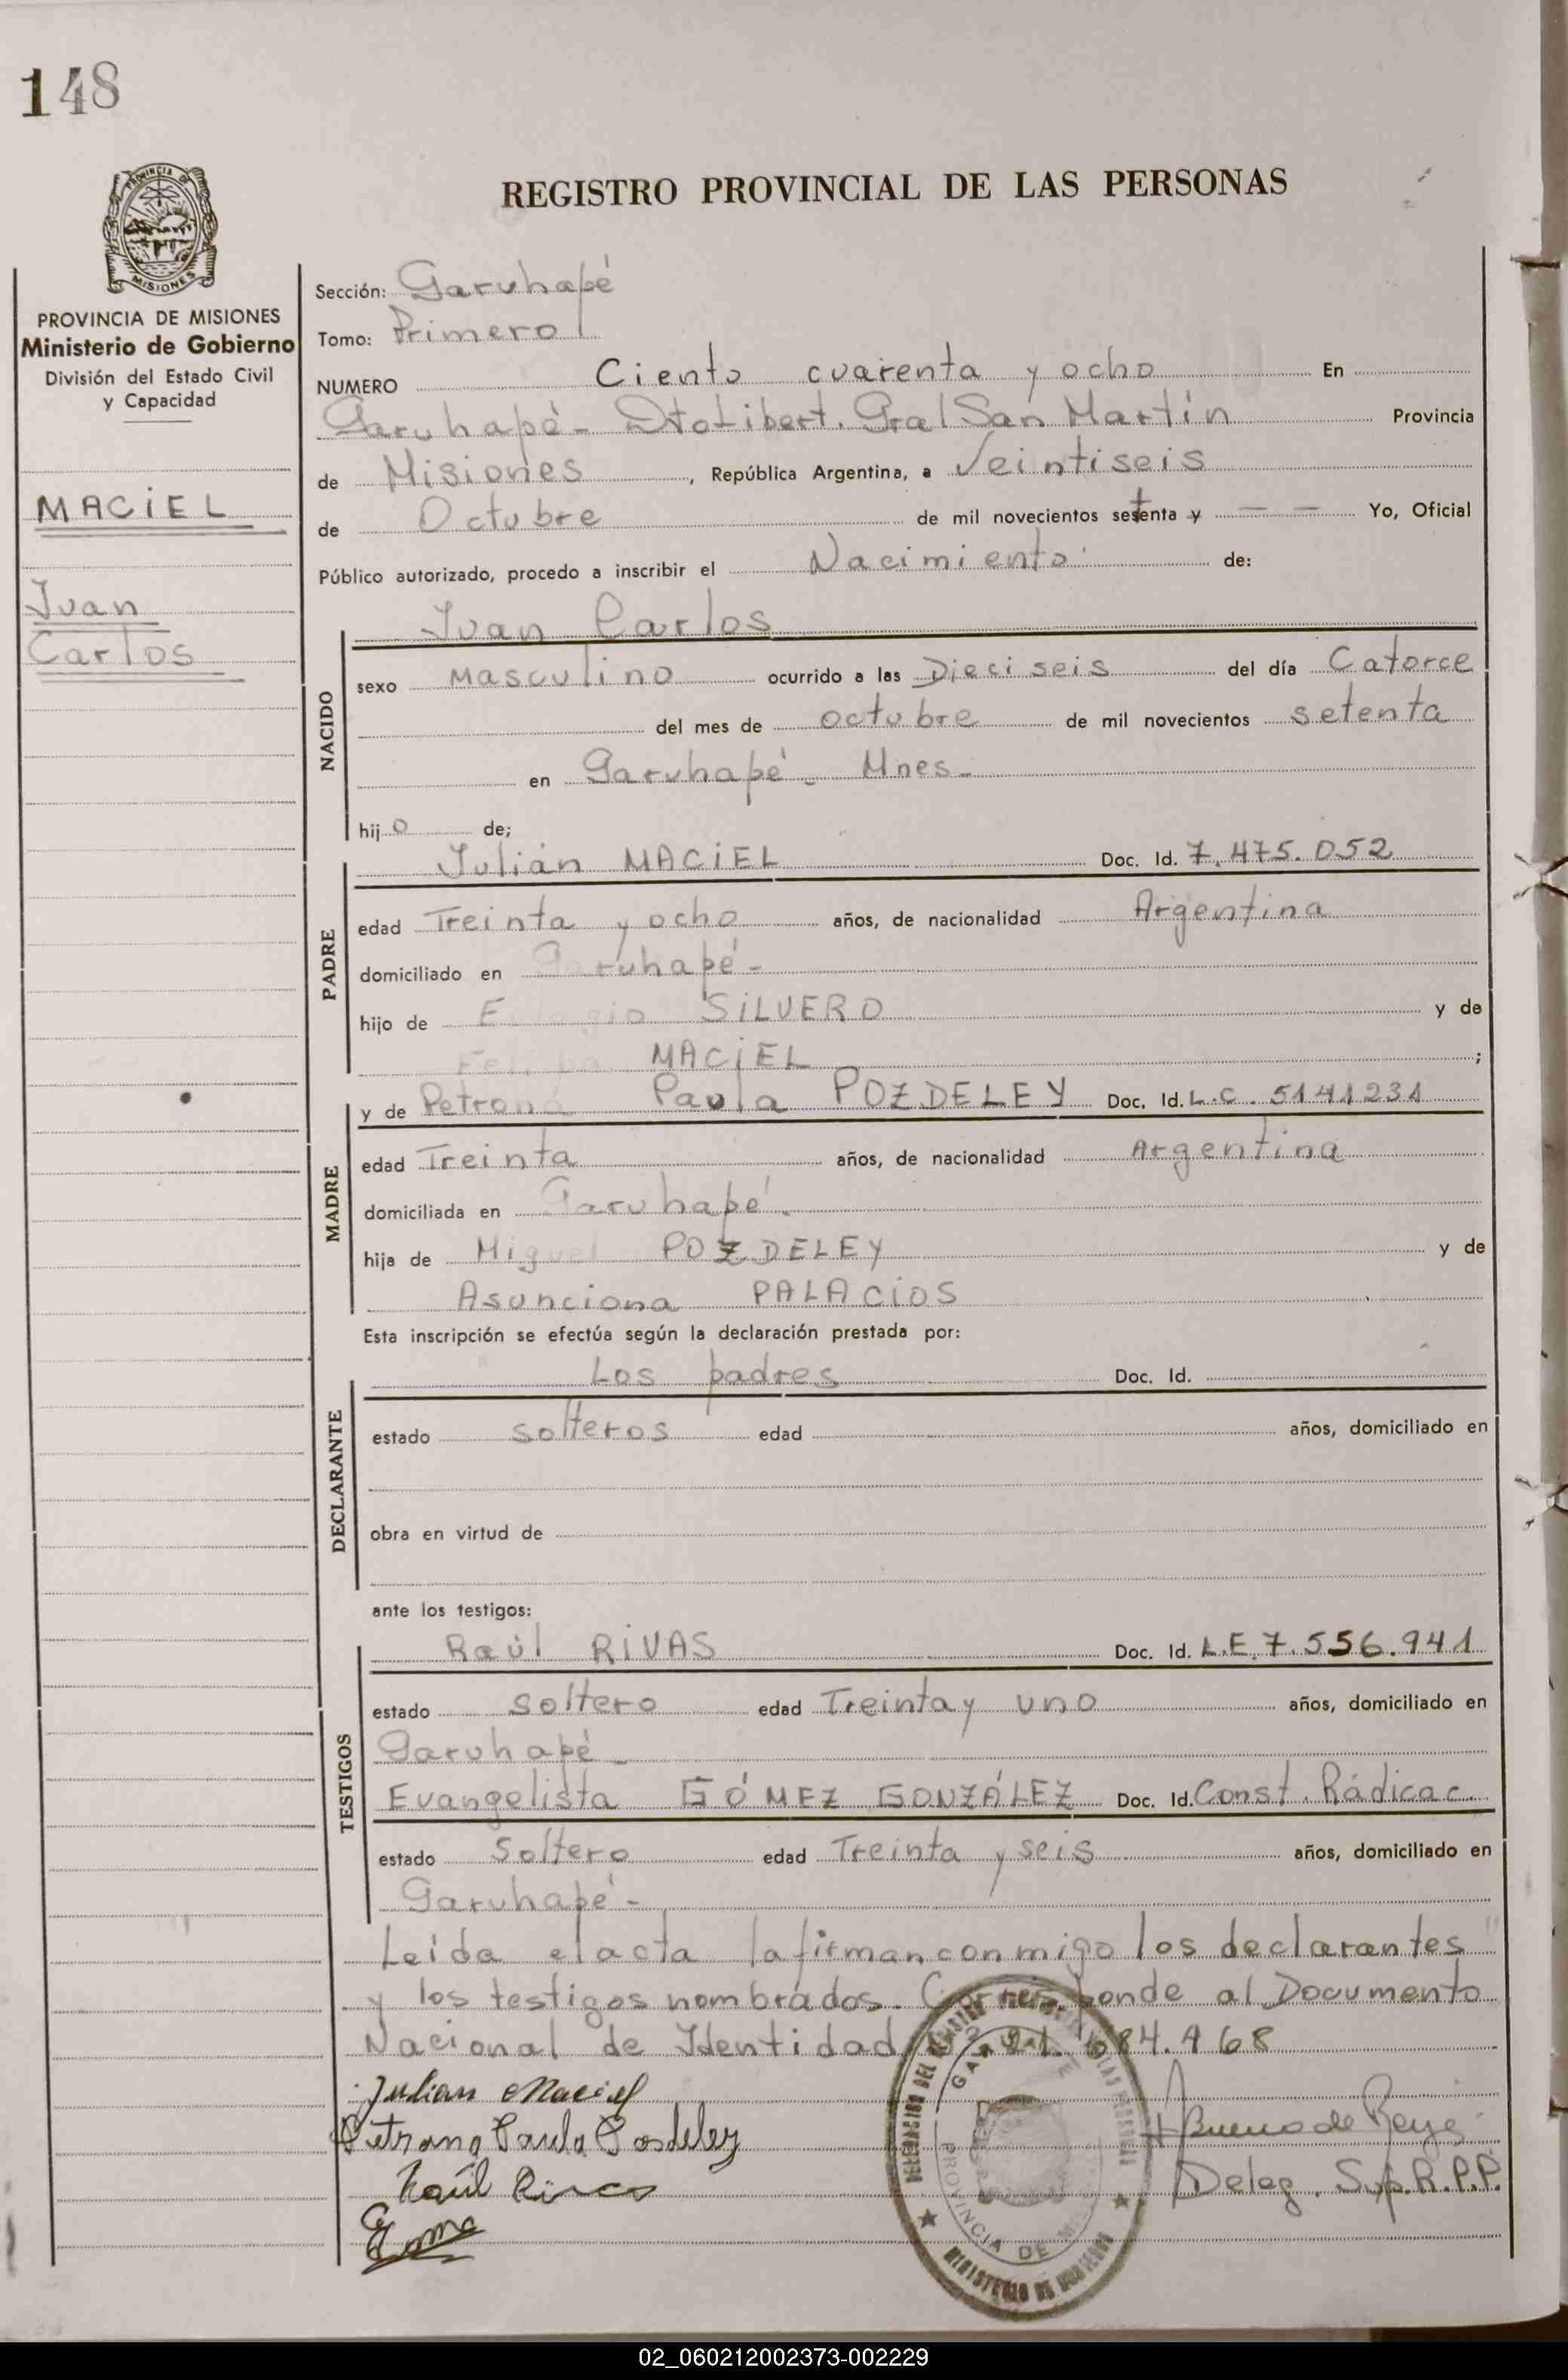 148
PROVINCIA DE MISIONES
PROVINCIA DE MISIONES
Ministerio de Gobierno
División del Estado Civil
y Capacidad
MACIEL
Juan
Carlos
REGISTRO PROVINCIAL DE LAS PERSONAS
Sección: Garuhapé
Tomo: Primero
NUMERO Ciento cuarenta y ocho En
Garuhapé - Dto Libert. Gral San Martín Provincia
de Misiones, República Argentina, a Veintiseis
de Octubre de mil novecientos setenta y — — Yo, Oficial
Público autorizado, procedo a inscribir el Nacimiento de:
Juan Carlos
NACIDO
sexo masculino ocurrido a las Dieciseis del día Catorce
del mes de octubre de mil novecientos setenta
en Garuhapé - Mnes-
hijo de;
PADRE
Julián MACIEL Doc. Id. 7.475.052
edad Treinta y ocho años, de nacionalidad Argentina
domiciliado en Garuhapé-
hijo de SILVERO y de
MACIEL ;
MADRE
y de Petrona Paula POZDELEY Doc. Id. L.C. 5141231
edad Treinta años, de nacionalidad Argentina
domiciliada en Garuhapé.
hija de Miguel POZDELEY y de
Asunciona PALACIOS
Esta inscripción se efectúa según la declaración prestada por:
DECLARANTE
Los padres Doc. Id.
estado solteros edad años, domiciliado en
obra en virtud de
ante los testigos:
TESTIGOS
Raúl RIVAS Doc. Id. L.E. 7.556.941
estado soltero edad Treinta y uno años, domiciliado en
Garuhapé-
Evangelista GÓMEZ GONZÁLEZ Doc. Id. Const. Rádicac.
estado Soltero edad Treinta y seis años, domiciliado en
Garuhapé-
Leída el acta la firman conmigo los declarantes
y los testigos nombrados. Corresponde al Documento
Nacional de Identidad
Julian Maciel
Petrona Paula Posdeley
Raúl Rivas
Bueno de Reys
Deleg. Sup. R.P.P.
PROVINCIA DE
MINISTERIO DE GOBIERNO
02_060212002373-002229